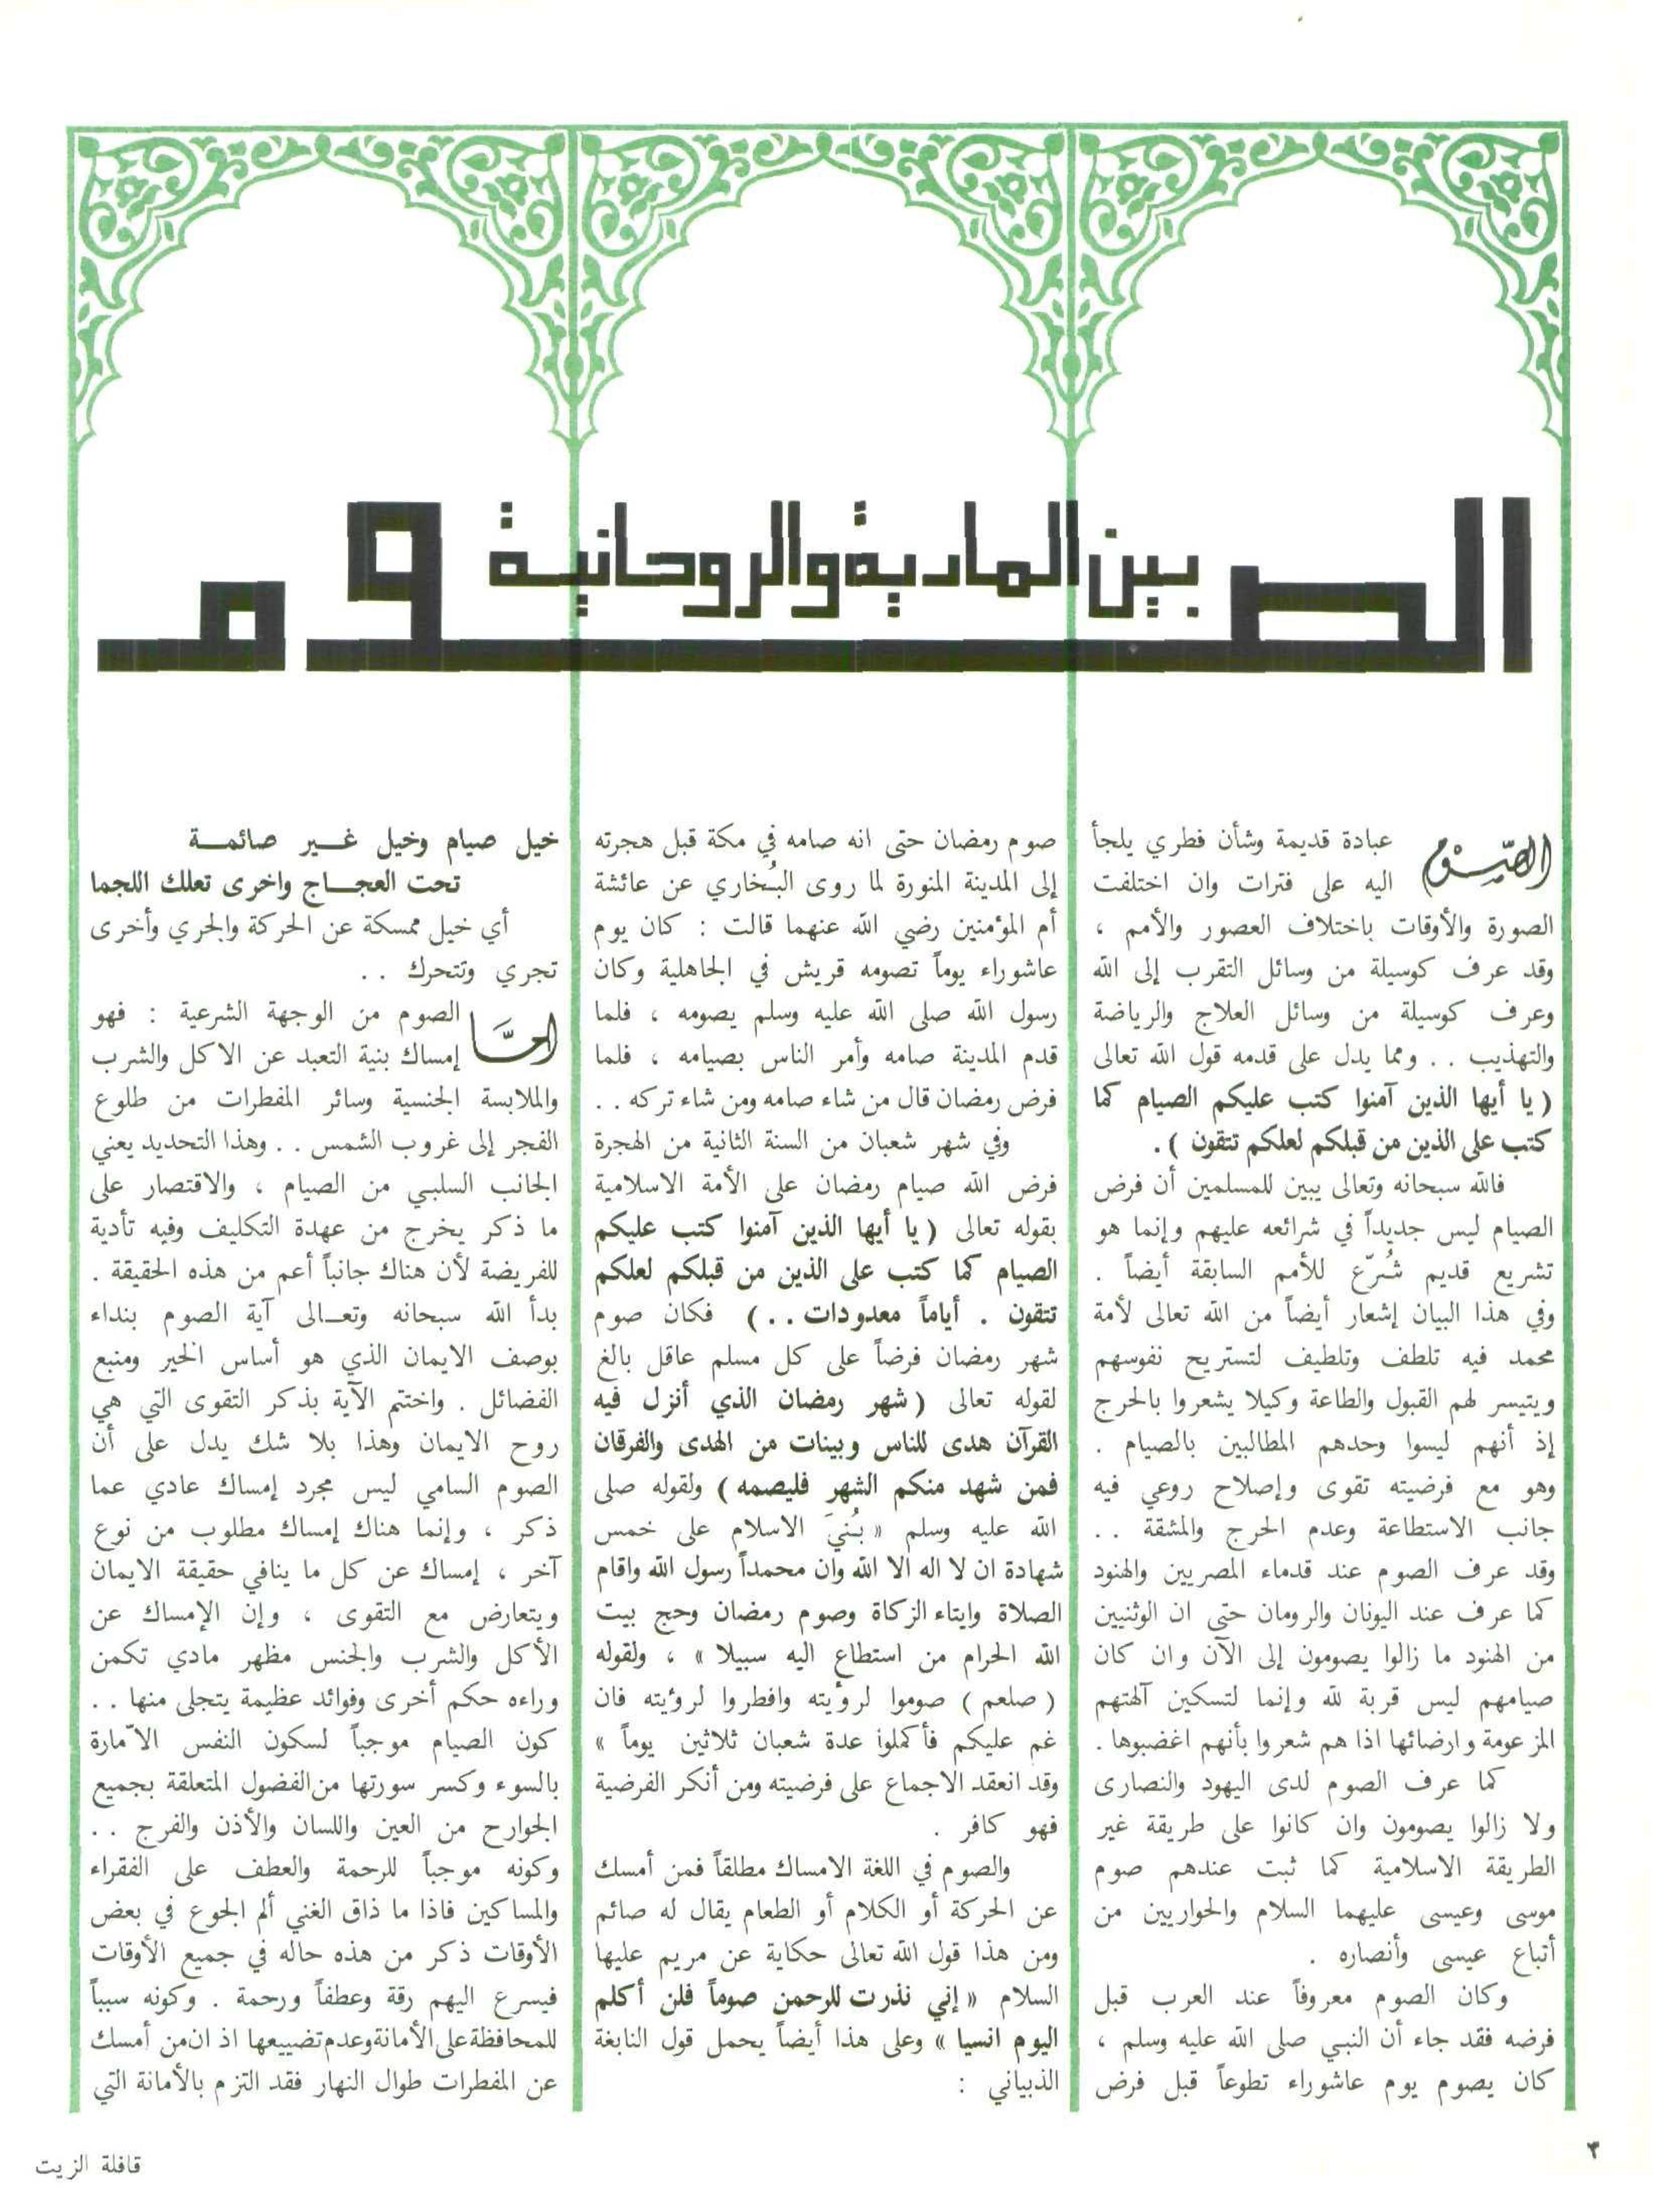 الصوم
بين المادية والروحانية
الصوم عبادة قديمة وشأن فطري يلجأ
اليه على فترات وان اختلفت
الصورة والأوقات باختلاف العصور والأمم ،
وقد عرف كوسيلة من وسائل التقرب إلى الله
وعرف كوسيلة من وسائل العلاج والرياضة
والتهذيب . . ومما يدل على قدمه قول الله تعالى
( يا أيها الذين آمنوا كتب عليكم الصيام كما
كتب على الذين من قبلكم لعلكم تتقون ) .
فالله سبحانه وتعالى يبين للمسلمين أن فرض
الصيام ليس جديداً في شرائعه عليهم وإنما هو
تشريع قديم شُرّع للأمم السابقة أيضاً .
وفي هذا البيان إشعار أيضاً من الله تعالى لأمة
محمد فيه تلطف وتلطيف لتستريح نفوسهم
ويتيسر لهم القبول والطاعة وكيلا يشعروا بالحرج
إذ أنهم ليسوا وحدهم المطالبين بالصيام .
وهو مع فرضيته تقوى وإصلاح روعي فيه
جانب الاستطاعة وعدم الحرج والمشقة . .
وقد عرف الصوم عند قدماء المصريين والهنود
كما عرف عند اليونان والرومان حتى ان الوثنيين
من الهنود ما زالوا يصومون إلى الآن وان كان
صيامهم ليس قربة لله وإنما لتسكين آلهتهم
المزعومة وارضائها اذا هم شعروا بأنهم اغضبوها .
كما عرف الصوم لدى اليهود والنصارى
ولا زالوا يصومون وان كانوا على طريقة غير
الطريقة الاسلامية كما ثبت عندهم صوم
موسى وعيسى عليهما السلام والحواريين من
أتباع عيسى وأنصاره .
وكان الصوم معروفاً عند العرب قبل
فرضه فقد جاء أن النبي صلى الله عليه وسلم ،
كان يصوم يوم عاشوراء تطوعاً قبل فرض
صوم رمضان حتى انه صامه في مكة قبل هجرته
إلى المدينة المنورة لما روى البُخاري عن عائشة
أم المؤمنين رضي الله عنهما قالت : كان يوم
عاشوراء يوماً تصومه قريش في الجاهلية وكان
رسول الله صلى الله عليه وسلم يصومه ، فلما
قدم المدينة صامه وأمر الناس بصيامه ، فلما
فرض رمضان قال من شاء صامه ومن شاء تركه . .
وفي شهر شعبان من السنة الثانية من الهجرة
فرض الله صيام رمضان على الأمة الاسلامية
بقوله تعالى ( يا أيها الذين آمنوا كتب عليكم
الصيام كما كتب على الذين من قبلكم لعلكم
تتقون . أياماً معدودات . . ) فكان صوم
شهر رمضان فرضاً على كل مسلم عاقل بالغ
لقوله تعالى ( شهر رمضان الذي أنزل فيه
القرآن هدى للناس وبينات من الهدى والفرقان
فمن شهد منكم الشهر فليصمه ) ولقوله صلى
الله عليه وسلم « بُنيَ الاسلام على خمس
شهادة ان لا اله الا الله وان محمداً رسول الله واقام
الصلاة وايتاء الزكاة وصوم رمضان وحج بيت
الله الحرام من استطاع اليه سبيلا » ، ولقوله
( صلعم ) صوموا لرؤيته وافطروا لرؤيته فان
غم عليكم فأكملوا عدة شعبان ثلاثين يوماً »
وقد انعقد الاجماع على فرضيته ومن أنكر الفرضية
فهو كافر .
والصوم في اللغة الامساك مطلقاً فمن أمسك
عن الحركة أو الكلام أو الطعام يقال له صائم
ومن هذا قول الله تعالى حكاية عن مريم عليها
السلام « إني نذرت للرحمن صوماً فلن أكلم
اليوم انسيا » وعلى هذا أيضاً يحمل قول النابغة
الذبياني :
خيل صيام وخيل غـــير صائمـــة
تحت العجـــاج واخرى تعلك اللجما
أي خيل ممسكة عن الحركة والجري وأخرى
تجري وتتحرك . .
أمّا الصوم من الوجهة الشرعية : فهو
إمساك بنية التعبد عن الاكل والشرب
والملابسة الجنسية وسائر المفطرات من طلوع
الفجر إلى غروب الشمس . . وهذا التحديد يعني
الجانب السلبي من الصيام ، والاقتصار على
ما ذكر يخرج من عهدة التكليف وفيه تأدية
للفريضة لأن هناك جانباً أعم من هذه الحقيقة .
بدأ الله سبحانه وتعـــالى آية الصوم بنداء
بوصف الايمان الذي هو أساس الخير ومنبع
الفضائل . واختتم الآية بذكر التقوى التي هي
روح الايمان وهذا بلا شك يدل على أن
الصوم السامي ليس مجرد إمساك عادي عما
ذكر ، وإنما هناك إمساك مطلوب من نوع
آخر ، إمساك عن كل ما ينافي حقيقة الايمان
ويتعارض مع التقوى ، وإن الإمساك عن
الأكل والشرب والجنس مظهر مادي تكمن
وراءه حكم أخرى وفوائد عظيمة يتجلى منها . .
كون الصيام موجباً لسكون النفس الامّارة
بالسوء وكسر سورتها من الفضول المتعلقة بجميع
الجوارح من العين واللسان والأذن والفرج . .
وكونه موجباً للرحمة والعطف على الفقراء
والمساكين فاذا ما ذاق الغني ألم الجوع في بعض
الأوقات ذكر من هذه حاله في جميع الأوقات
فيسرع اليهم رقة وعطفاً ورحمة . وكونه سبباً
للمحافظة على الأمانة وعدم تضييعها اذ ان من أمسك
عن المفطرات طوال النهار فقد التزم بالأمانة التي
٢
قافلة الزيت